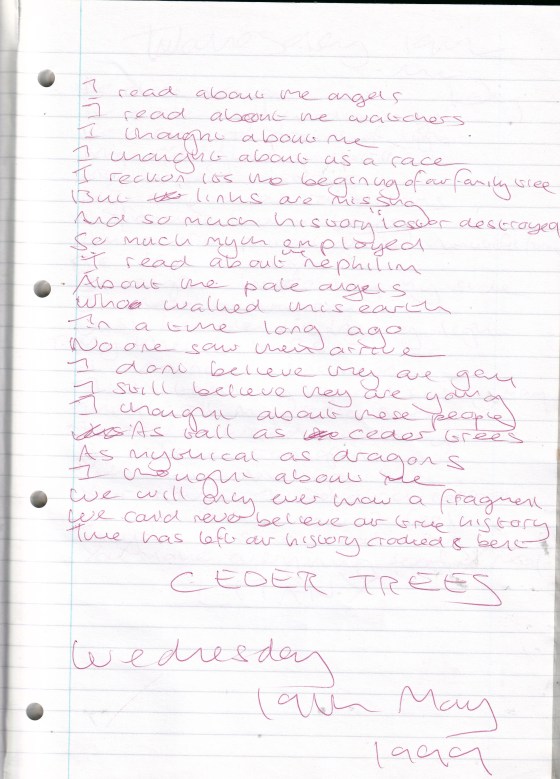 I read about the angels
I read about the watchers
I thought about me
I thought about us a race
I reckon its the begining of our family tree
But links are missing
And so much history is lost or destroyed
So much myth employed
I read about the nephilim
About the pale angels
who walked this earth
In a time long ago
No one saw them arrive
I dont believe they are gone
I still believe they are young
I thought about these people
As tall as ceder trees
As mythical as dragons
I thought about me
We will only ever know a fragment
We could never believe our true history
Time has left our history crooked & bent
CEDER TREES
Wednesday
19th May
1999